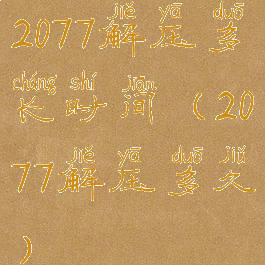 jiě yā duō
2077解压多
cháng shí jiān
长时间(20
jiě yā duō jiǔ
77解压多久
)